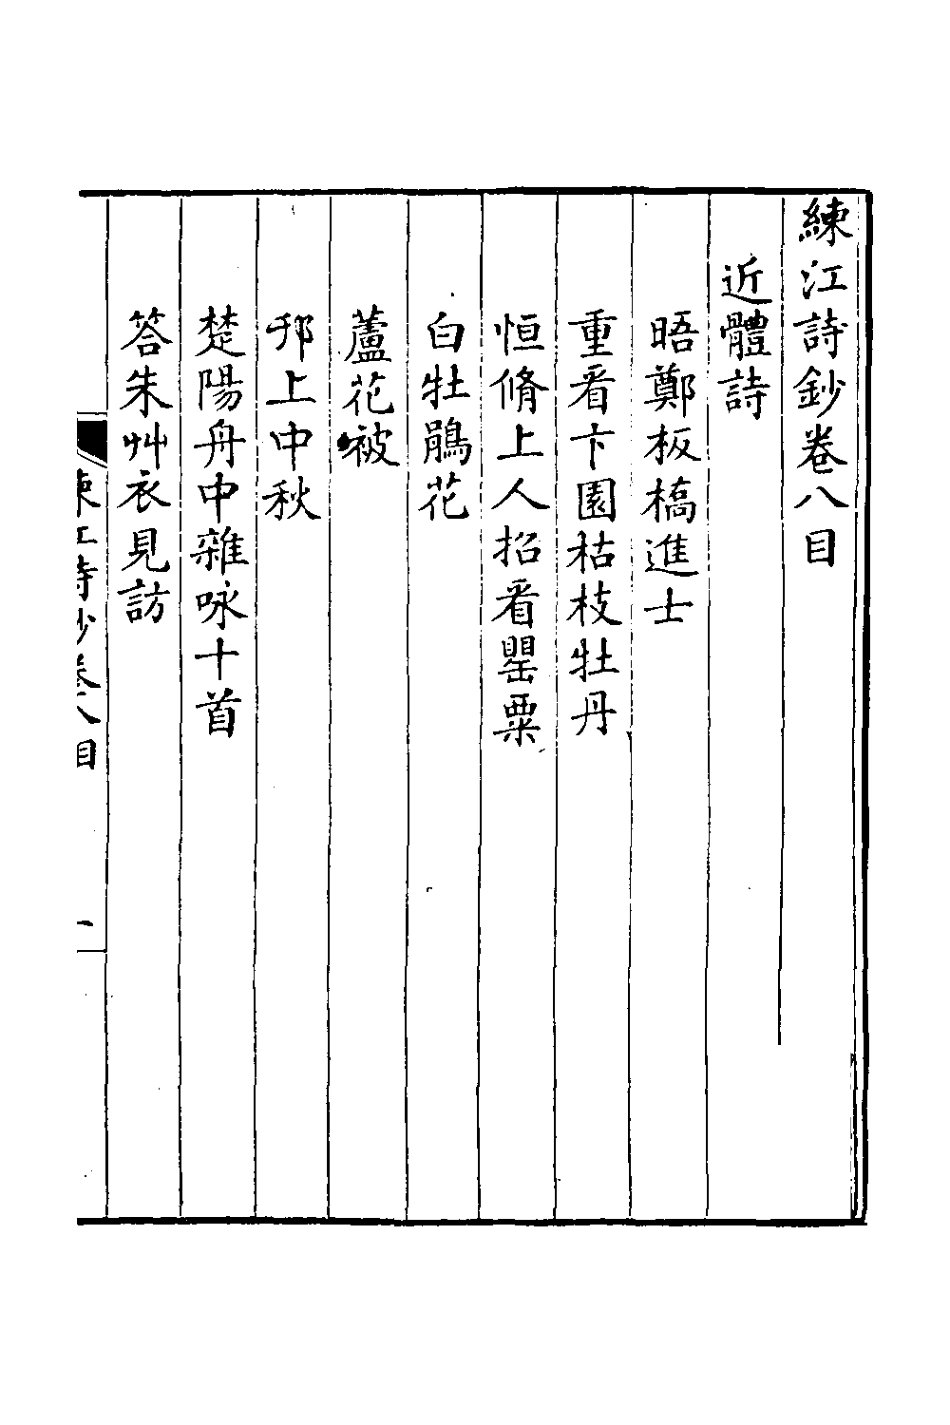 練江詩鈔卷八目
近體詩
晤鄭板橋進士
重看卞園枯枝牡丹
恒脩上人招看罌粟
白牡鵑花
蘆花被
邗上中秋
楚陽舟中雜咏十首
答朱艸衣見訪
練江詩鈔卷八目
一